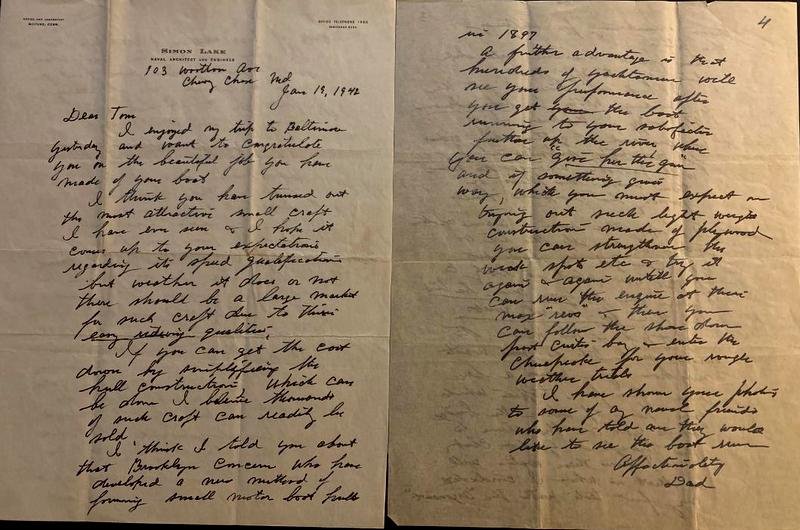 MILFORD, CONN.
OFFICE TELEPHONE
SIMON LAKE
NAVAL ARCHITECT AND ENGINEER
103 Ave
Chevy Chase Md
Jan 19, 1942
Dear Tom
I enjoyed my trip to Baltimore
yesterday and want to congratulate
you on the beautiful job you have
made of your boat
I think you have turned out
the most attractive small craft
I have ever seen & I hope it
comes up to your expectations
regarding its speed qualifications
but weather it does or not
there should be a large market
for such craft due to their
easy rideing qualities,
If you can get the cost
down by simplifying the
hull construction, which can
be done I believe thousands
of such craft can readily be
sold
I think I told you about
that Brooklyn concern who have
developed a new method of
forming small motor boat hulls
4
in 1897
A further advantage is that
hundreds of yachtsmen will
see your performance after
you get your the boat
running to your satisfaction
further up the river where
you can "give her the gun"
and if something gives
way, which you must expect in
trying out such light weight
construction made of plywood
you can strengthen the
weak spots etc & try it
again & again untill you
can run the engine at their
max "revs" - then you
can follow the shore down
past Curtis bay & enter the
Chesapeake for your rough
weather trials
I have shown your photos
to some of my naval friends
who have told me they would
like to see the boat run
Affectionately
Dad